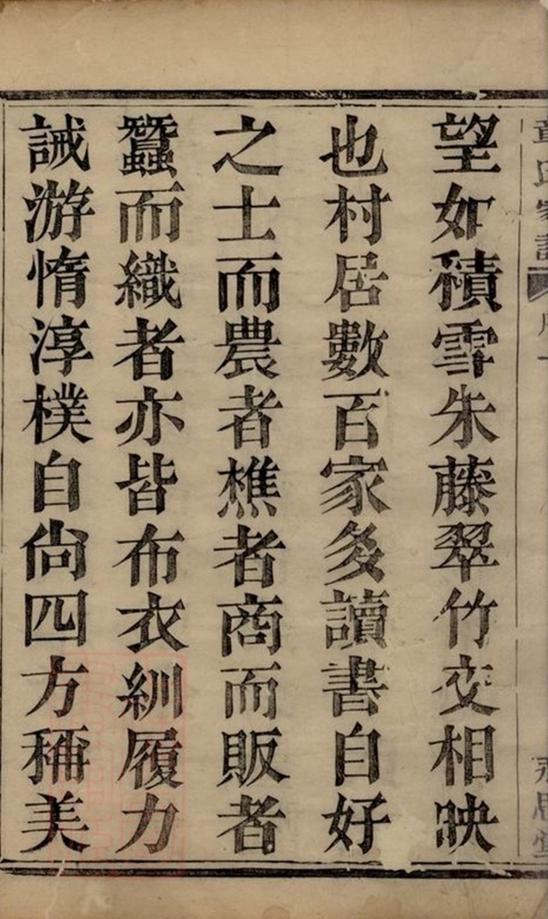 望如積雪朱藤翠竹交相映
也村居數百家多讀書自好
之士而農者樵者商而販者
蠶而織者亦皆布衣紃履力
誡游惰淳樸自尙四方稱美